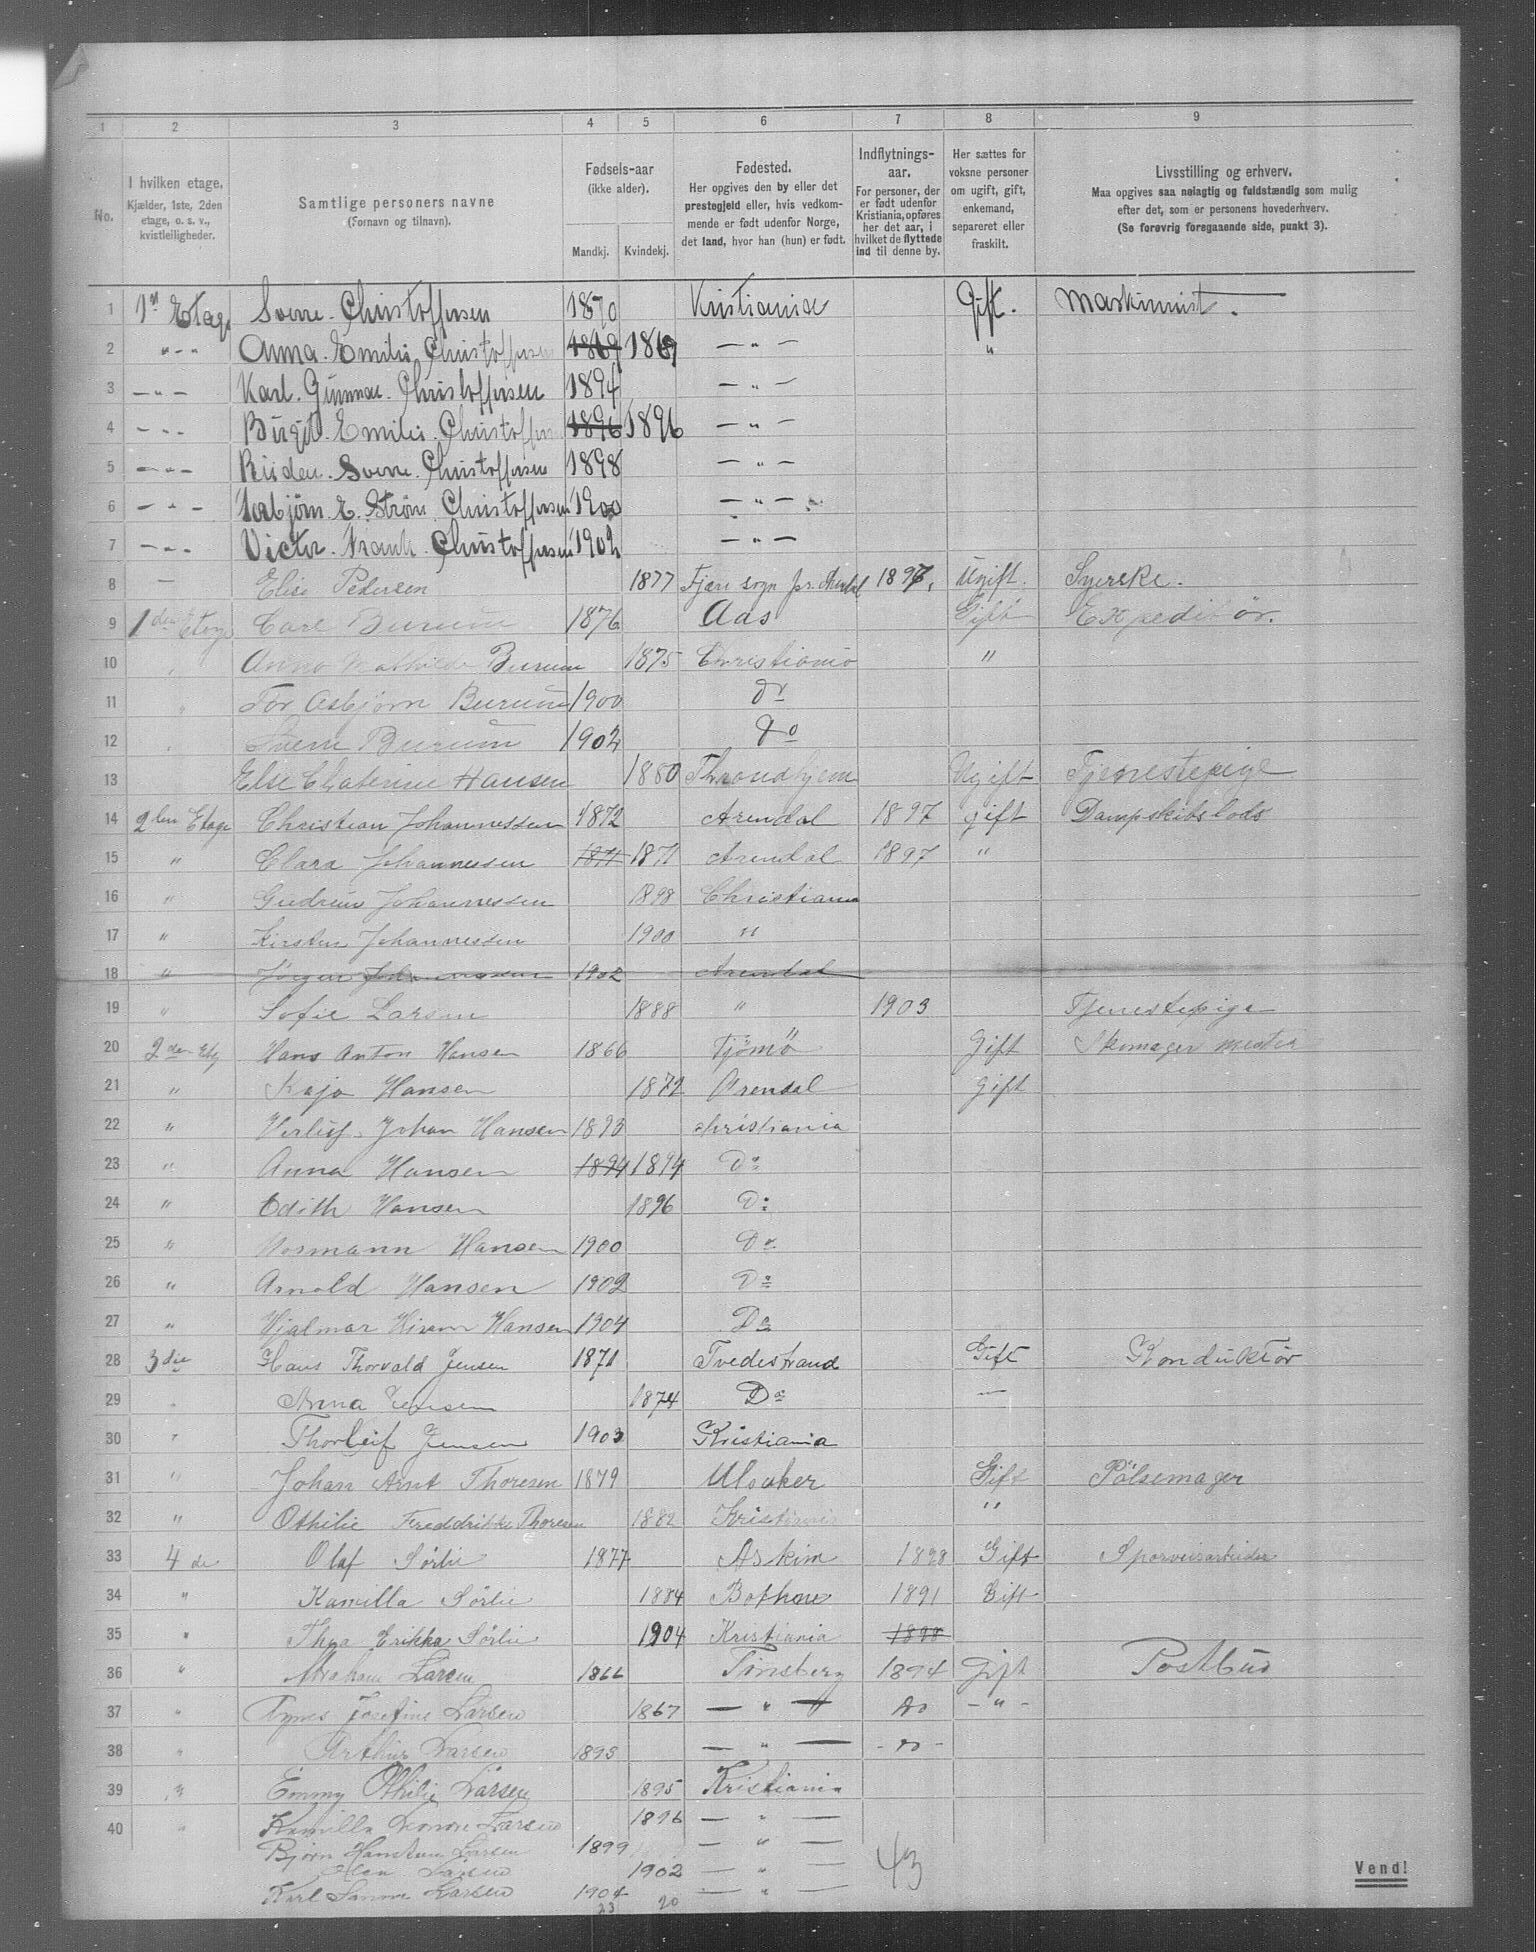 1 2 3 4 5 6 7 8 9
No. | I hvilken etage. Kjælder, 1ste, 2den etage, o. s. v., kvistleiligheder. | Samtlige personers navne (Fornavn og tilnavn). | Fødsels-aar (ikke alder). Mandkj. Kvindekj. | Fødested. Her opgives den by eller det prestegjeld eller, hvis vedkommende er født udenfor Norge, det land, hvor han (hun) er født. | Indflytnings-aar. For personer, der er født udenfor Kristiania, opføres her det aar, i hvilket de flyttede ind til denne by. | Her sættes for voksne personer om ugift, gift, enkemand, separeret eller fraskilt. | Livsstilling og erhverv. Maa opgives saa nøiagtig og fuldstændig som mulig efter det, som er personens hovederhverv. (Se forøvrig foregaaende side, punkt 3).
1 Etage Sverre Christoffersen 1870 Kristiania Gift. Maskinist.
2 — " — Anna Emilie Christoffersen 1869 1869 — " — "
3 — " — Karl Gunnar Christoffersen 1894 — " —
4 — " — Birgit Emilie Christoffersen 1896 1896 — " —
5 — " — Sverre Christoffersen 1898 — " —
6 — " — E. Strøm Christoffersen 1900 — " —
7 — " — Victor Frank Christoffersen 1902 — " —
8 — Elise Pedersen 1877 Fjære sogn pr. Arendal 1897. Ugift. Syerske.
9 1den Etage Carl Burum 1876 Aas Gift Expeditør.
10 " Anna Mathilde Burum 1875 Christiania "
11 " Tor Asbjørn Burum 1900 do
12 " Burum 1902 do
13 Else Chaterine Hansen 1880 Throndhjem Ugift Tjenestepige
14 2den Etage Christian Johannessen 1872 Arendal 1897 gift Dampskibslods
15 " Clara Johannessen 1871 1871 Arendal 1897 "
16 " Gudrun Johannessen 1898 Christiania
17 " Kirsten Johannessen 1900 "
18 " Jørgen Johannessen 1902 Arendal
19 " Sofie Larsen 1888 " 1903 Tjenestepige
20 2den Etg Hans Anton Hansen 1866 Tjömö Gift Skomager mester
21 " Kaja Hansen 1872 Arendal gift
22 " Johan Hansen 1893 christiania
23 " Anna Hansen 1894 1894 Do
24 " Edith Hansen 1896 Do
25 " Normann Hansen 1900 Do
26 " Arnold Hansen 1902 Do
27 " Hjalmar Hansen 1904 Do
28 3die Hans Thorvald Jensen 1871 Tvedestrand Gift Konduktör
29 " Anna Jensen 1874 Do —
30 " Thorleif Jensen 1903 Kristiania
31 " Johan Arnt Thoresen 1879 Ulsaker Gift Pölsemager
32 " Othilie Freddrikke Thoresen 1882 Kristiania "
33 4de Olaf Sørlie 1877 Askim 1898 Gift Sporveisarbeider
34 " Kamilla Sørlie 1884 1891 Gift
35 " Thea Erikka Sørlie 1904 Kristiania 1898
36 " Abraham Larsen 1866 Tønsberg 1894 gift Postbud
37 " Agnes Josefine Larsen 1867 — " — do — " —
38 " Arthur Larsen 1893 — " — - do -
39 " Emmy Othilie Larsen 1895 Kristiania
40 " Kamilla Larsen 1896 — " —
Bjørn Larsen 1899 — " —
Larsen 1902 — " — 43
Karl Larsen 1904 — " —
23 20
Vend!